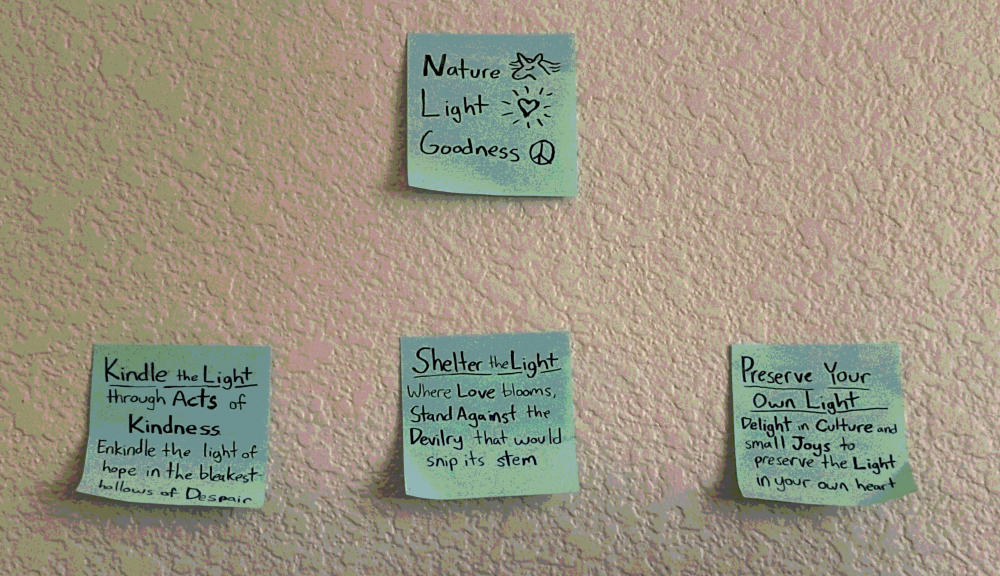 Nature
Light
Goodness
Kindle the Light
through Acts of
Kindness
Enkindle the light of
hope in the bleakest
hollows of Despair
Shelter the Light
Where Love blooms,
Stand Against the
Devilry that would
snip its stem
Preserve Your
Own Light
Delight in Culture and
small Joys to
preserve the Light
in your own heart